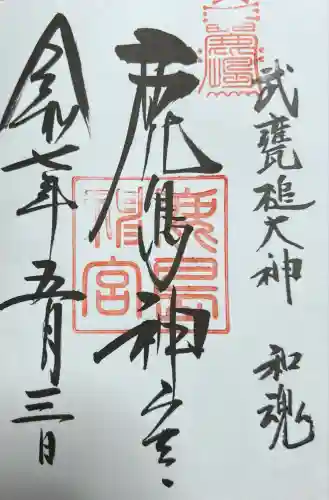 武甕槌大神 和魂
鹿島神宮
令和七年五月三日
鹿島
神宮